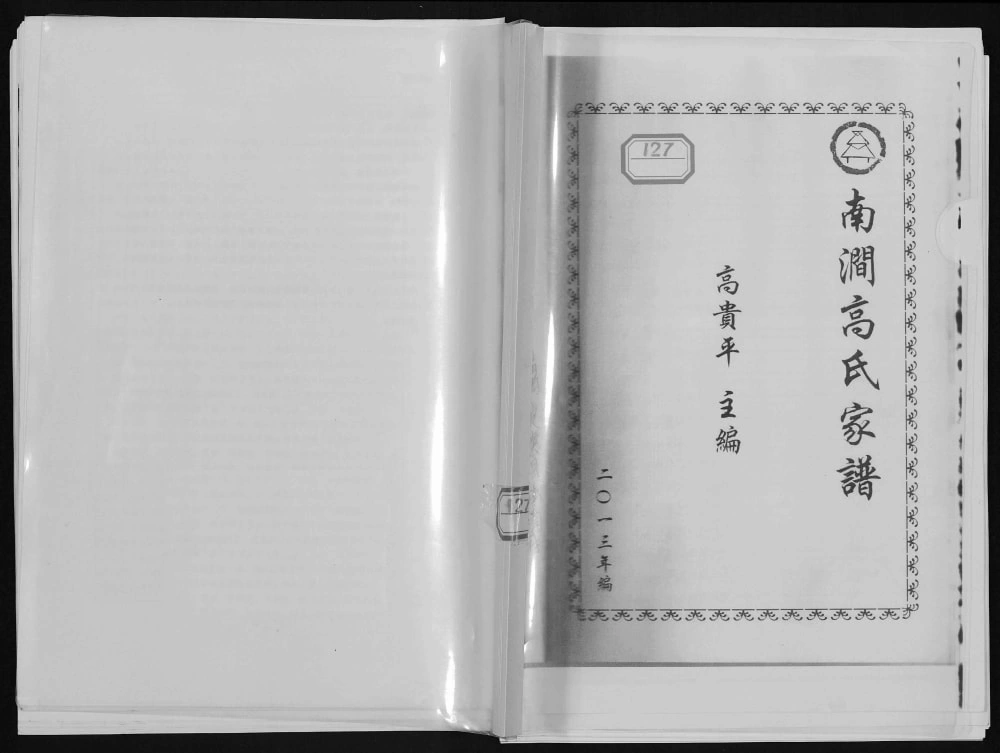 南澗高氏家譜
高貴平 主編
二〇一三年編
127
127